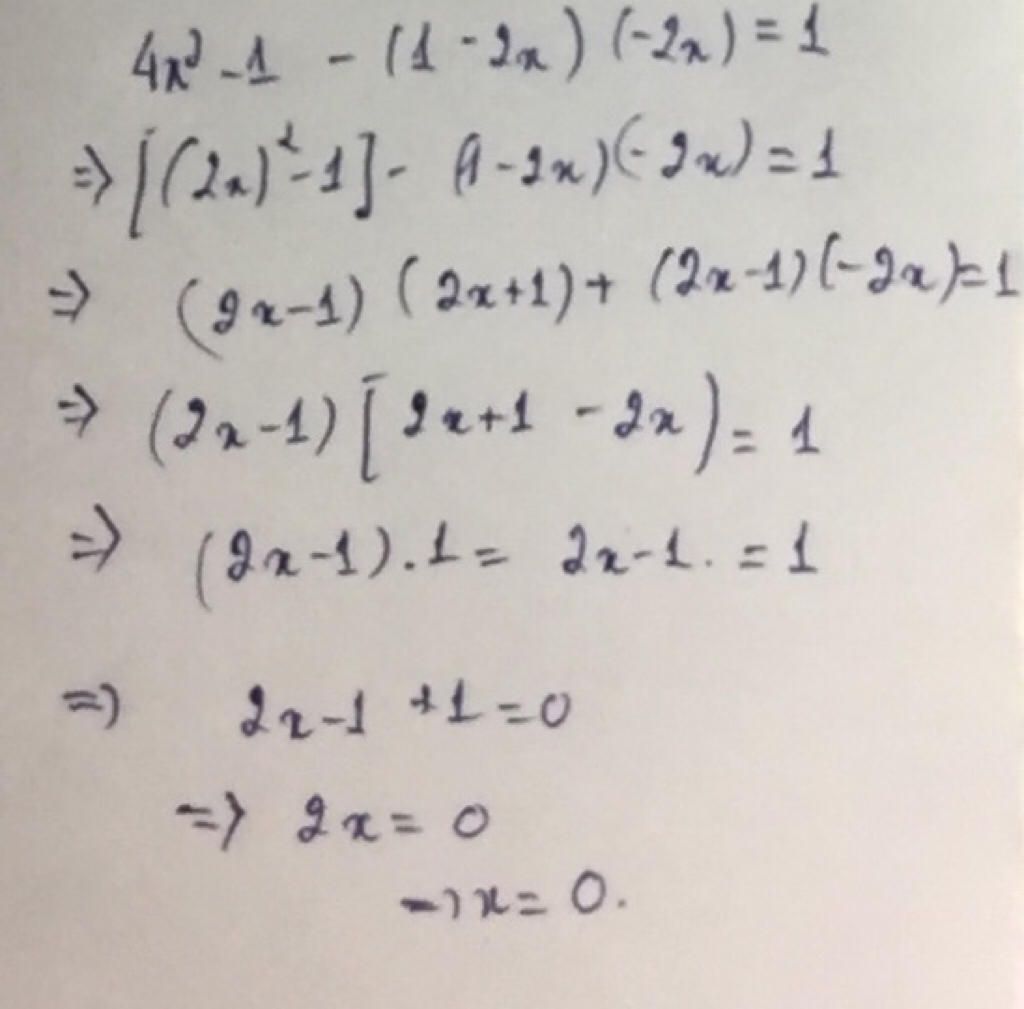 4x² - 1 - (1 - 2x) (-2x) = 1
⇒ [(2x)² - 1] - (1 - 2x)(-2x) = 1
⇒ (2x - 1) (2x + 1) + (2x - 1)(-2x) = 1
⇒ (2x - 1) [2x + 1 - 2x) = 1
⇒ (2x - 1) . 1 = 2x - 1 . = 1
⇒ 2x - 1 + 1 = 0
⇒ 2x = 0
⇒ x = 0.